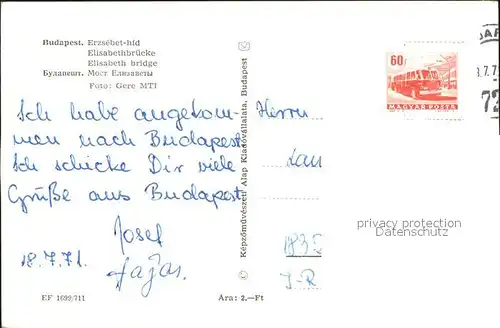 Budapest. Erzsébet-híd
Elisabethbrücke
Elisabeth bridge
Будапешт. Мост Елизаветы
Foto: Gere MTI
Ich habe angekom-
men nach Budapest
Ich schicke Dir viele
Grüße aus Budapest
Josef
18.7.71.
EF 1699/711
Ara: 2.—Ft
Képzőművészeti Alap Kiadóvállalata, Budapest
Herrn
60f
MAGYAR POSTA
privacy protection
Datenschutz